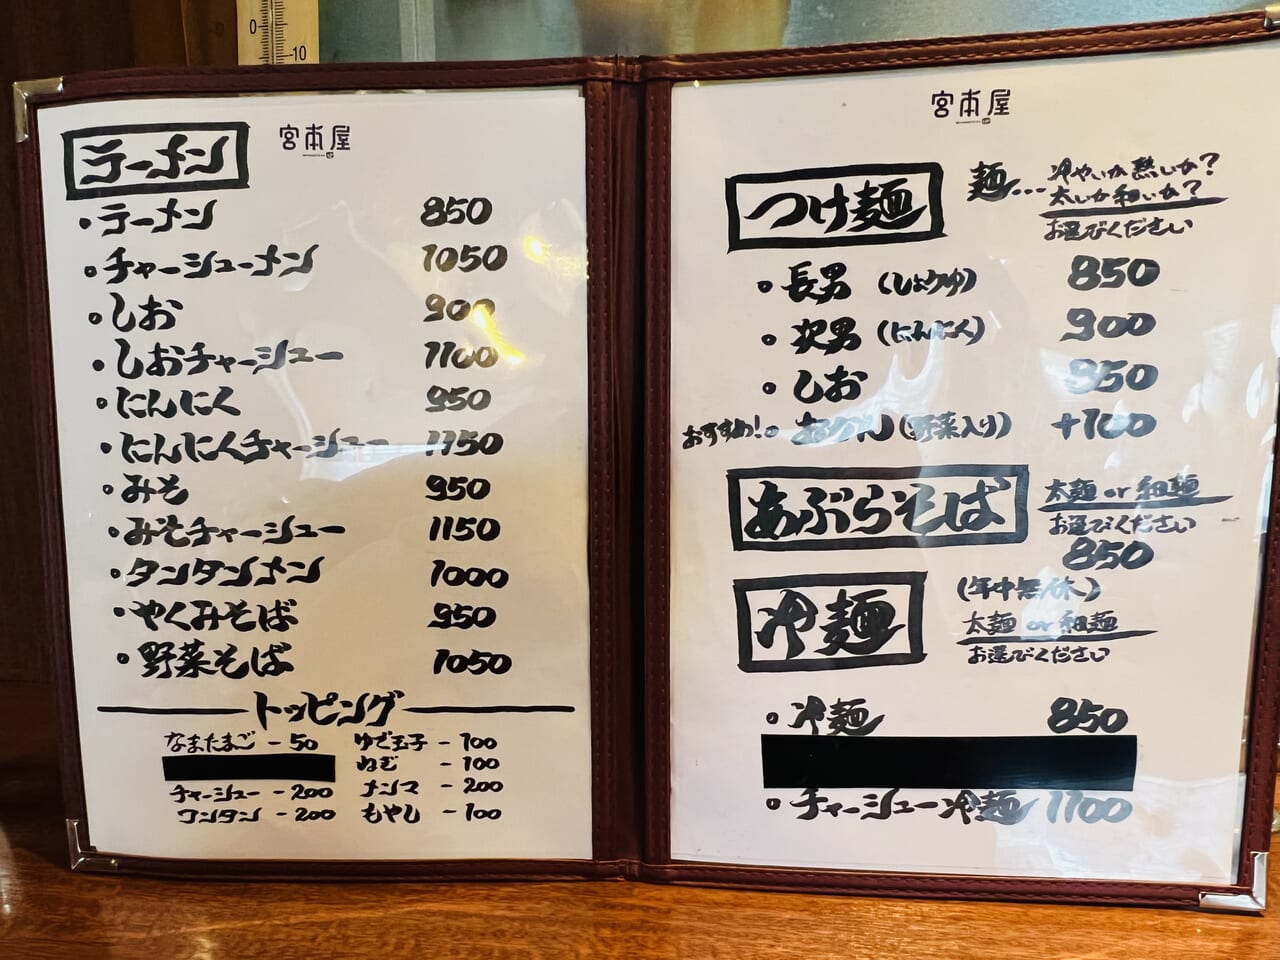 宮本屋
ラーメン
・ラーメン 850
・チャーシューメン 1050
・しお 900
・しおチャーシュー 1100
・にんにく 950
・にんにくチャーシュー 1150
・みそ 950
・みそチャーシュー 1150
・タンタンメン 1000
・やくみそば 950
・野菜そば 1050
トッピング
なまたまご - 50
チャーシュー - 200
ワンタン - 200
ゆで玉子 - 100
ねぎ - 100
メンマ - 200
もやし - 100
宮本屋
つけ麺
麺… 冷やいか熱いか?
太いか細いか?
お選びください
・長男 (しょうゆ) 850
・次男 (にんにく) 900
・しお 850
おすすめ!・ (野菜入り) +100
あぶらそば
太麺 or 細麺
お選びください
850
冷麺
(年中無休)
太麺 or 細麺
お選びください
・冷麺 850
・チャーシュー冷麺 1100
0
0
10